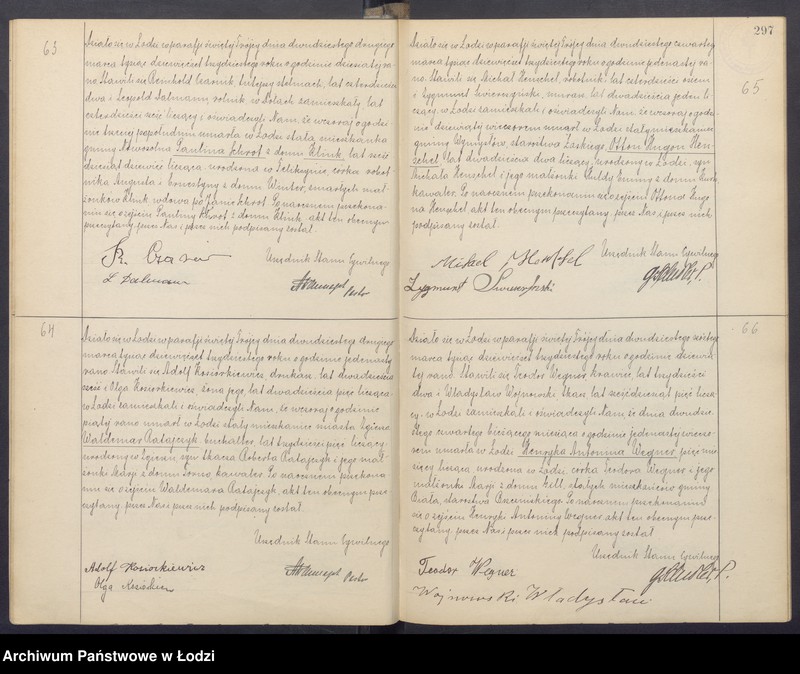 63
Działo się w Łodzi w parafji świętej Trójcy dnia dwudziestego drugiego
marca tysiąc dziewięćset trzydziestego roku o godzinie dziesiątej ra-
no. Stawili się Reinhold tutejszy stelmach, lat czterdzieści
dwa i Leopold Salmann, rolnik w zamieszkały, lat
czterdzieści sześć liczący i oświadczyli Nam, że wczoraj o godzi-
nie trzeciej popołudniu umarła w Łodzi stała mieszkanka
gminy Nowosolna Paulina Schrot z domu Klink, lat sześć-
dziesiąt dziewięć licząca, urodzona w córka robot-
nika Augusta i Ernestyny z domu Winter, zmarłych mał-
żonków Klink, wdowa po Janie Schrot. Po naocznem przekona-
niu się o zejściu Pauliny Schrot z domu Klink, akt ten obecnym
przeczytany, przez Nas i przez nich podpisany został.
Urzędnik Stanu Cywilnego
Pastor
64
Działo się w Łodzi w parafji świętej Trójcy dnia dwudziestego drugiego
marca tysiąc dziewięćset trzydziestego roku o godzinie jedenastej
rano. Stawili się Adolf Kosiorkiewicz, drukarz, lat dwadzieścia
sześć i Olga Kosiorkiewicz, żona jego, lat dwadzieścia pięć licząca,
w Łodzi zamieszkali i oświadczyli Nam, że wczoraj o godzinie
piątej rano umarł w Łodzi stały mieszkaniec miasta Zgierza
Waldemar Ratajczyk, buchalter, lat trzydzieści pięć liczący,
urodzony w Zgierzu, syn tkacza Roberta Ratajczyk i jego mał-
żonki Marji z domu kawaler. Po naocznem przekona-
niu się o zejściu Waldemara Ratajczyk, akt ten obecnym prze-
czytany, przez Nas i przez nich podpisany został.
Urzędnik Stanu Cywilnego
Adolf Kosiorkiewicz
Pastor
Olga
297
65
Działo się w Łodzi w parafji świętej Trójcy dnia dwudziestego czwartego
marca tysiąc dziewięćset trzydziestego roku o godzinie jedenastej ra-
no. Stawili się Michał Henschel, robotnik, lat czterdzieści osiem
i Zygmunt murarz, lat dwadzieścia jeden li-
czący, w Łodzi zamieszkali i oświadczyli Nam, że wczoraj o godzi-
nie dziewiątej wieczorem umarł w Łodzi stały mieszkaniec
gminy Wymysłów, starostwa Łaskiego, Otton Hugon Hen-
schel, lat dwadzieścia dwa liczący, urodzony w Łodzi, syn
Michała Henschel i jego małżonki Huldy Emmy z domu
kawaler. Po naocznem przekonaniu się o zejściu Ottona Hugo-
na Henschel, akt ten obecnym przeczytany, przez Nas i przez nich
podpisany został.
Urzędnik Stanu Cywilnego
Zygmunt
66
Działo się w Łodzi w parafji świętej Trójcy dnia dwudziestego szóstego
marca tysiąc dziewięćset trzydziestego roku o godzinie dziewią-
tej rano. Stawili się Teodor Wegner, krawiec, lat trzydzieści
dwa i Władysław Wojnowski, tkacz, lat sześćdziesiąt pięć liczą-
cy, w Łodzi zamieszkali i oświadczyli Nam, że dnia dwudzie-
stego czwartego bieżącego miesiąca o godzinie jedenastej wieczo-
rem umarła w Łodzi Henryka Antonina Wegner, pięć mie-
sięcy licząca, urodzona w Łodzi, córka Teodora Wegner i jego
małżonki Marji z domu Zell, stałych mieszkańców gminy
Biała, starostwa Brzezińskiego. Po naocznem przekonaniu
się o zejściu Henryki Antoniny Wegner, akt ten obecnym prze-
czytany, przez Nas i przez nich podpisany został.
Urzędnik Stanu Cywilnego
Teodor Wegner
Wojnowski Władysław
Archiwum Państwowe w Łodzi